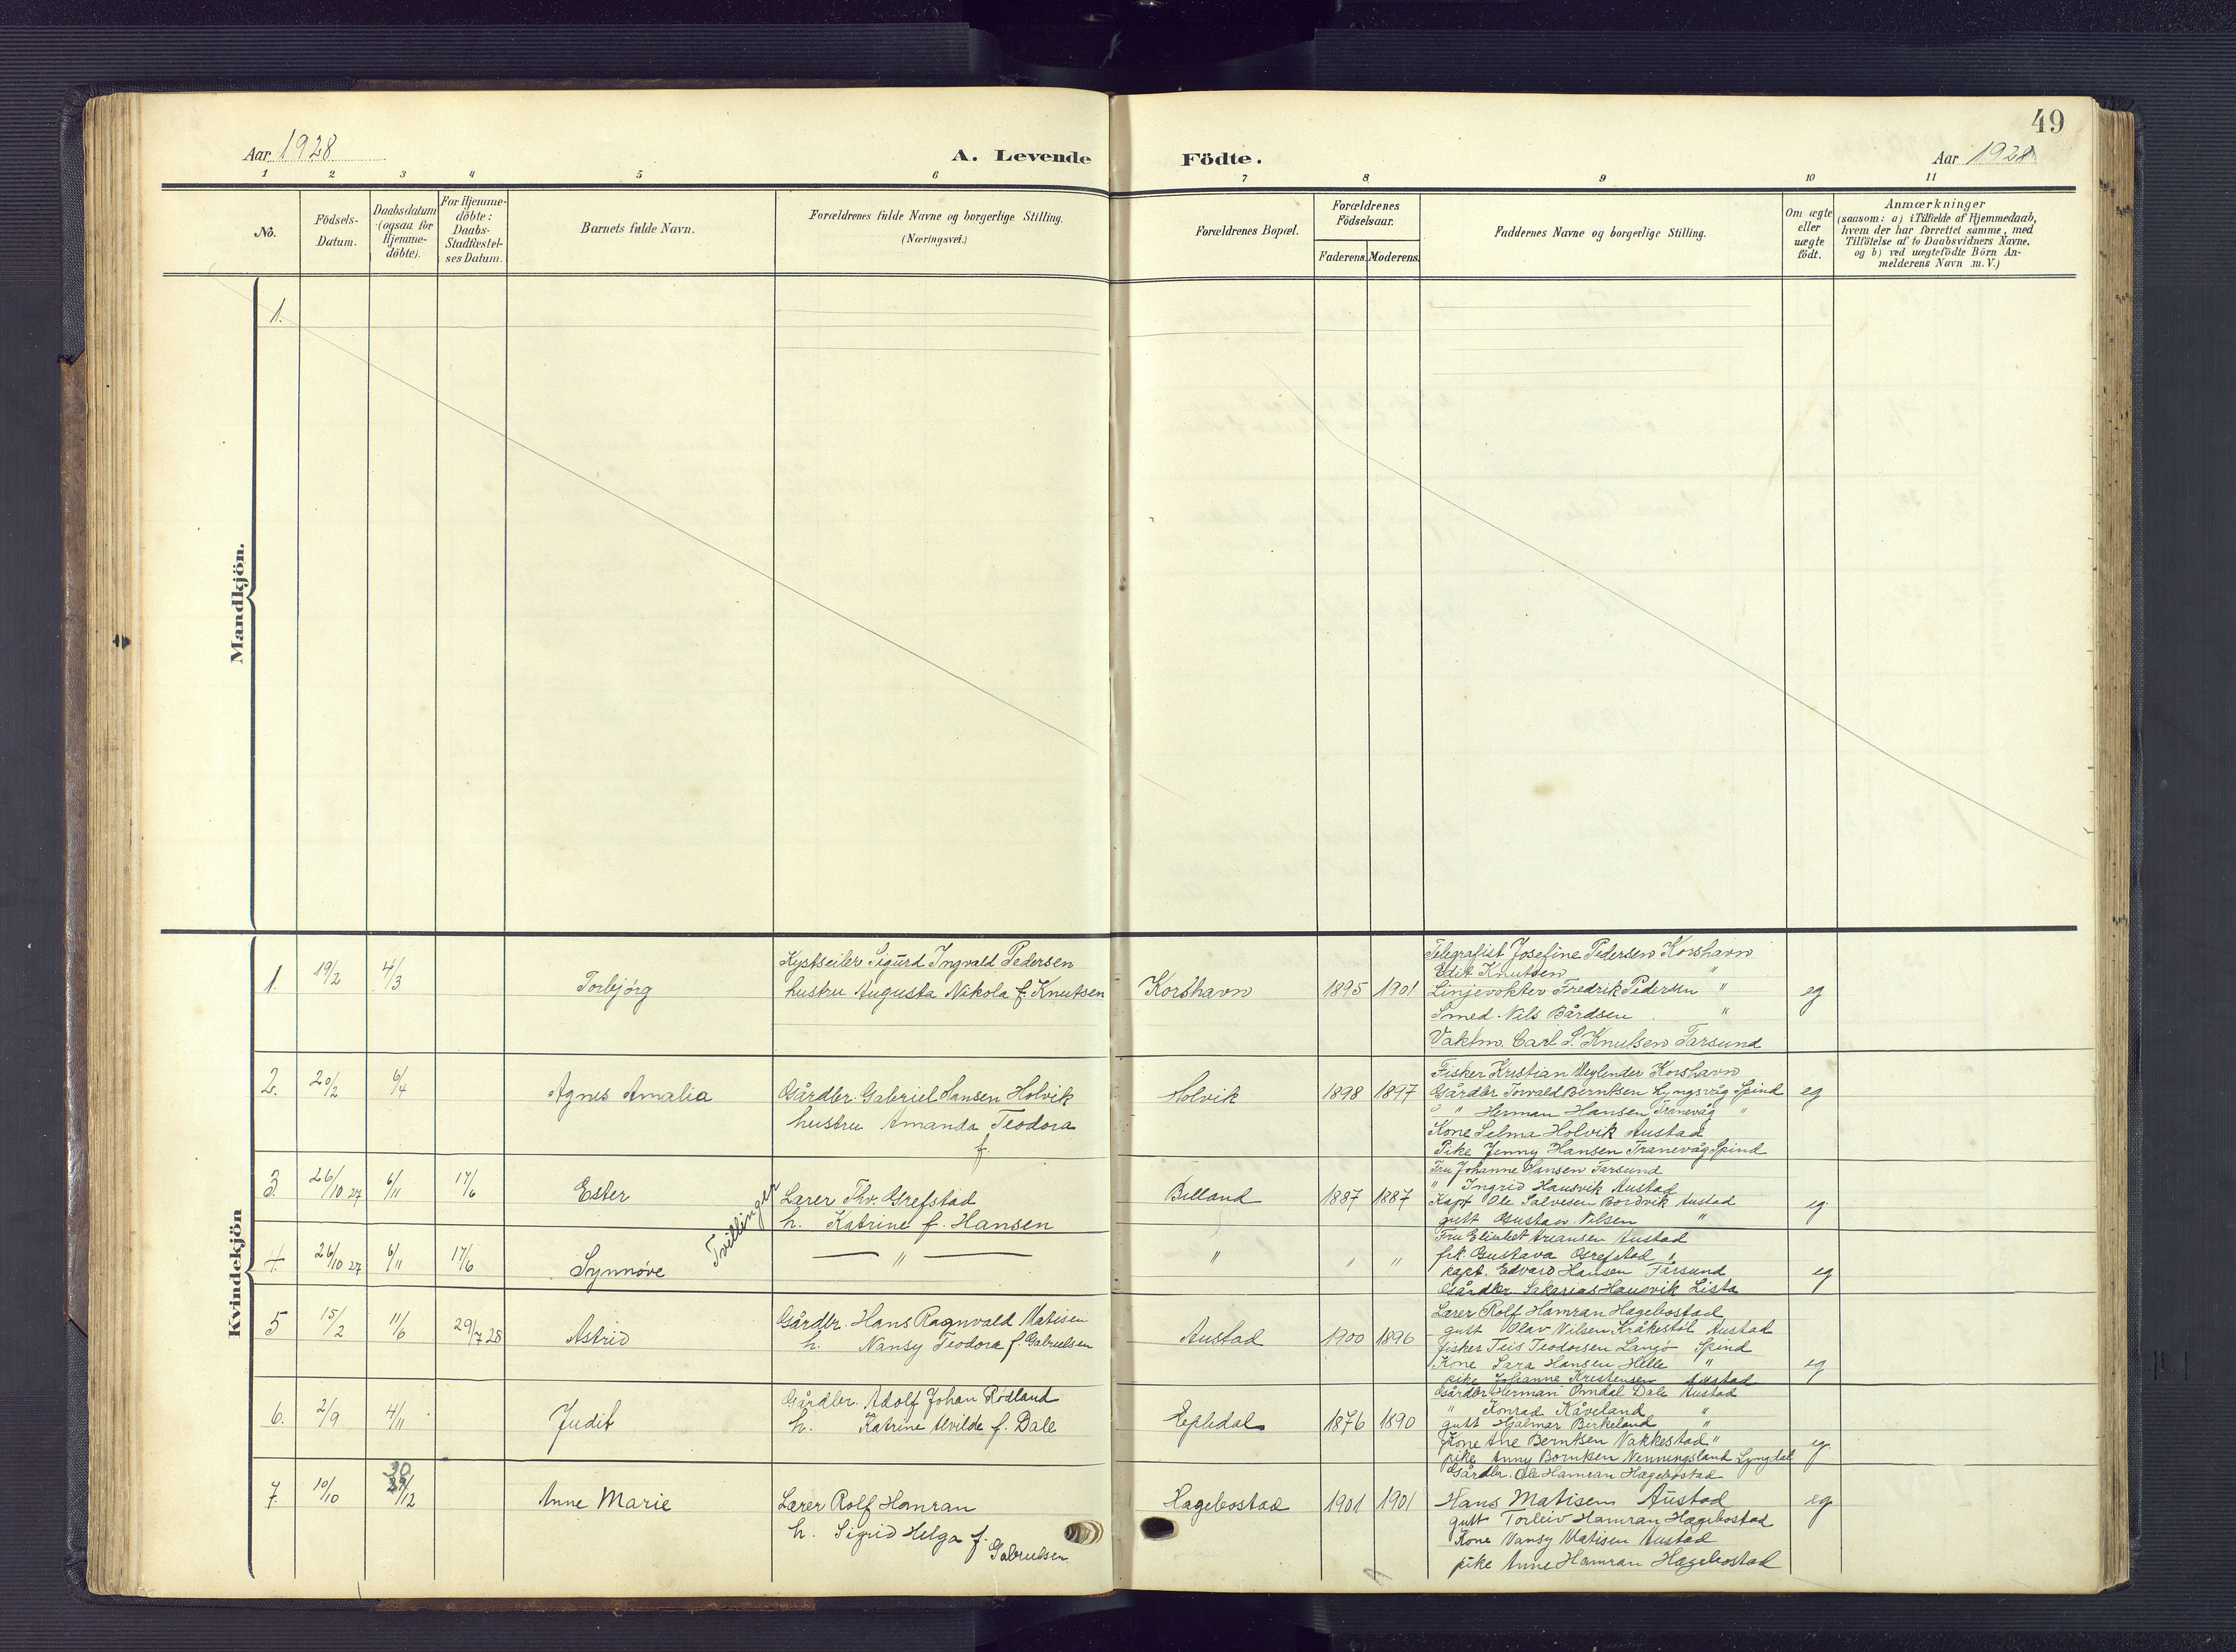 49
Aar 1928
A. Levende
Födte.
Aar 1928
1 2 3 4 5 6 7 8 9 10 11
No.
Födsels-
Datum.
Daabsdatum
(ogsaa for
Hjemme-
döbte).
For Hjemme-
döbte:
Daabs-
Stadfæstel-
ses Datum.
Barnets fulde Navn.
Forældrenes fulde Navne og borgerlige Stilling.
(Næringsvei.)
Forældrenes Bopæl.
Forældrenes
Födselsaar.
Faderens. Moderens.
Faddernes Navne og borgerlige Stilling.
Om ægte
eller
uægte
födt.
Anmærkninger
(saasom: a) i Tilfælde af Hjemmedaab,
hvem der har forrettet samme, med
Tilföielse af to Daabsvidners Navne,
og b) ved uægtefödte Börn An-
melderens Navn m. V.)
Mandkjön.
1.
Kvindekjön
1. 19/2 4/3 Torbjórg
Kystseiler Sigurd Ingvald Pedersen
hustru Augusta Nikola f. Knutsen
Korshavn 1895 1901
Telegrafist Josefine Pedersen Korshavn
Edit Knutsen "
Linjevokter Fredrik Pedersen "
Smed. Nils Bårdsen "
Vaktm. Carl S. Knutsen Farsund
eg
2. 20/2 6/4 Agnes Amalia
Gårdbr. Gabriel Hansen Holvik
hustru Amanda Teodora
f.
Holvik 1898 1897
Fisker Kristian Korshavn
Gårdbr Torvald Berntsen Lyngsvåg Spind
" Herman Hansen Tranevåg "
Kone Selma Holvik Austad
Pike Jenny Hansen Tranevåg Spind
eg
3. 26/10 27 6/11 17/6 Ester
Tvillinger
Lærer Thv. Grefstad
h. Katrine f. Hansen
Billand 1887 1887
Fru Johanne Hansen Farsund
" Ingrid Hausvik Austad
Kapt Ole Salvesen Bordvik Austad
gutt Gustav Nilsen "
eg
4. 26/10 27 6/11 17/6 Synnøve
"
" " "
Fru Elisabet Austad
frk. Gustava Grefstad "
kapt. Edvard Hansen Farsund
Gårdbr. Sakarias Hausvik Lista
eg
5 15/2 11/6 29/7 28 Astrid
Gårdbr. Hans Ragnvald Matisen
h. Nansy Teodora f. Gabrielsen
Austad 1900 1896
Lærer Rolf Hamran Hægebostad
gutt Olav Nilsen Kråkestøl Austad
fisker Teis Teodorsen Langø Spind
Kone Sara Hansen Helle "
pike Johanne Kristensen Austad
eg
6. 2/9 4/11 Judit
Gårdbr. Adolf Johan Rødland
h. Katrine Alvilde f. Dale
Epledal 1876 1890
Gårdbr Herman Omdal Dale Austad
" Konrad Kåveland "
gutt Hjalmar Birkeland "
Kone Ane Berntsen Vakkestad "
pike Anny Berntsen Lyngdal
eg
7. 10/10 30/12 Anne Marie
Lærer Rolf Hamran
h. Sigrid Helga f.
Gabrielsen
Hægebostad 1901 1901
Gårdbr. Ole Hamran Hægebostad
Hans Matisen Austad
gutt Torleiv Hamran Hægebostad
Kone Nansy Matisen Austad
pike Anne Hamran Hægebostad
eg